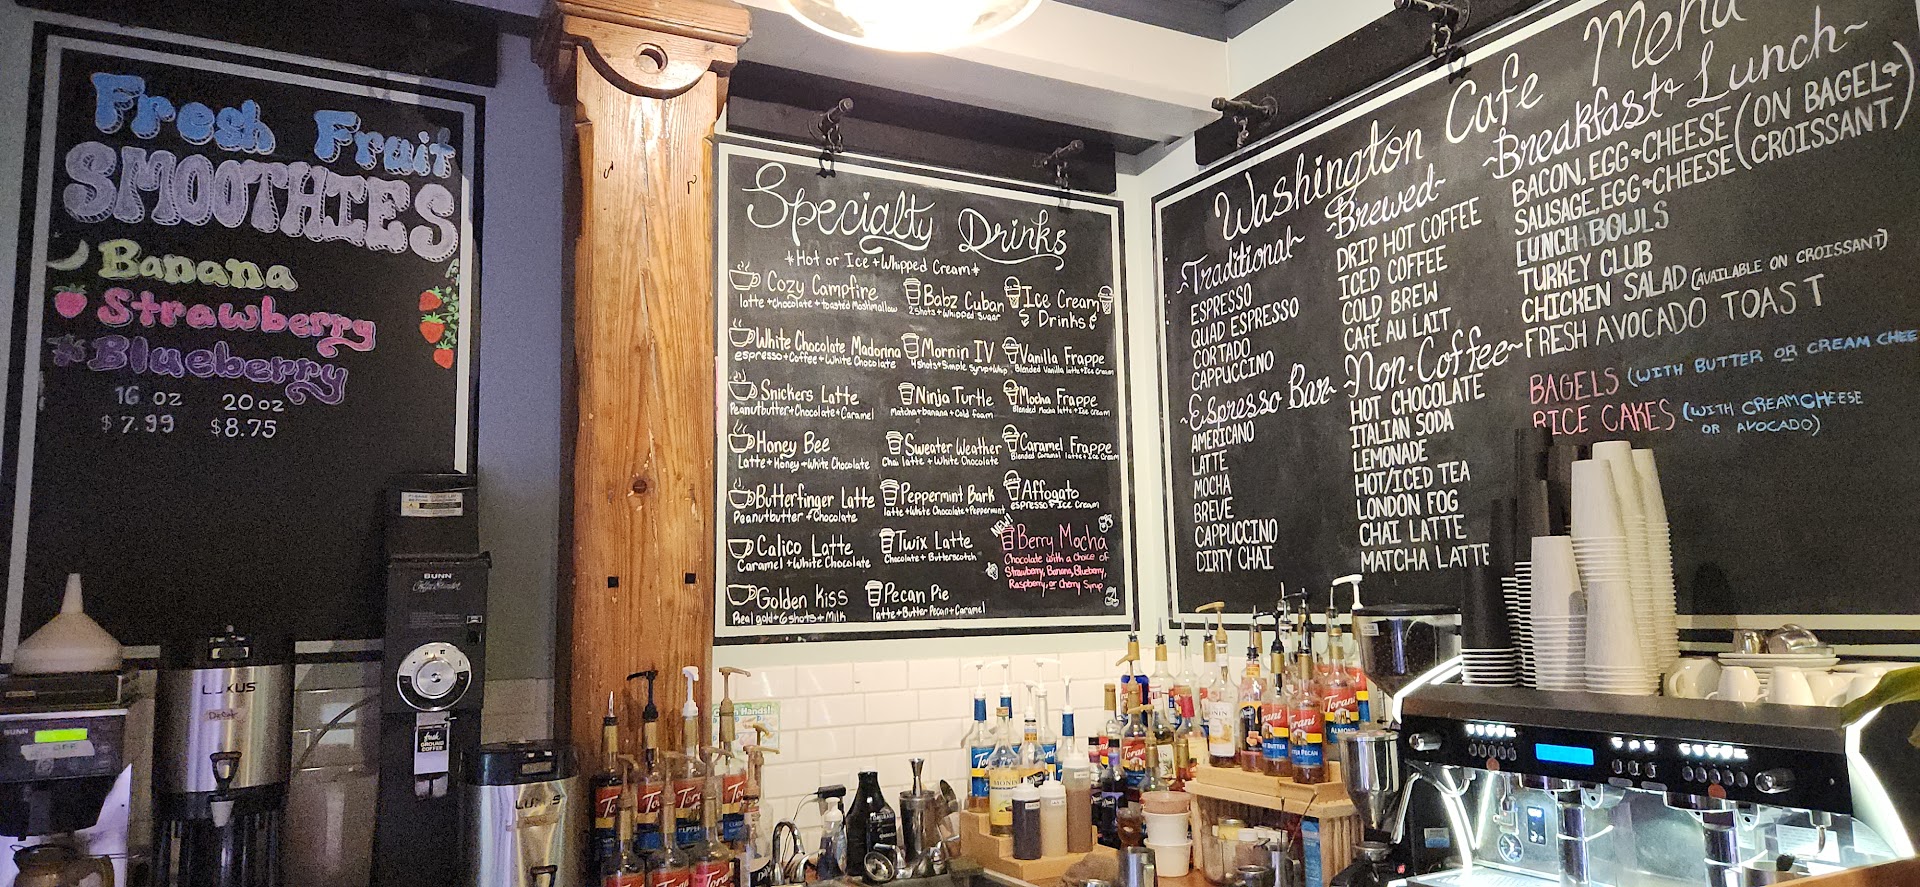 Fresh Fruit
SMOOTHIES
Banana
Strawberry
Blueberry
16 oz 20 oz
$7.99 $8.75
Specialty Drinks
*Hot or Ice + Whipped Cream*
Cozy Campfire
latte + chocolate + toasted Marshmallow
White Chocolate Madonna
espresso + Coffee + White Chocolate
Snickers Latte
Peanutbutter + Chocolate + Caramel
Honey Bee
Latte + Honey + White Chocolate
Butterfinger Latte
Peanutbutter + Chocolate
Calico Latte
Caramel + White Chocolate
Golden Kiss
Real gold + 6 shots + Milk
Babz Cuban
2 Shots + Whipped Sugar
Mornin IV
4 shots + Simple syrup + Whip
Ninja Turtle
Matcha + banana + Cold foam
Sweater Weather
Chai latte + White Chocolate
Peppermint Bark
latte + White Chocolate + Peppermint
Twix Latte
Chocolate + Butterscotch
Pecan Pie
latte + Butter Pecan + Caramel
Ice Cream
Drinks
Vanilla Frappe
Blended Vanilla latte + Ice Cream
Mocha Frappe
Blended Mocha latte + Ice Cream
Caramel Frappe
Blended Caramel latte + Ice Cream
Affogato
espresso + Ice Cream
NEW!
Berry Mocha
Chocolate with a choice of
Strawberry, Banana, Blueberry,
Raspberry, or Cherry Syrup
Washington Cafe Menu
~Traditional~
ESPRESSO
QUAD ESPRESSO
CORTADO
CAPPUCCINO
~Espresso Bar~
AMERICANO
LATTE
MOCHA
BREVE
CAPPUCCINO
DIRTY CHAI
~Brewed~
DRIP HOT COFFEE
ICED COFFEE
COLD BREW
CAFÉ AU LAIT
~Non-Coffee~
HOT CHOCOLATE
ITALIAN SODA
LEMONADE
HOT/ICED TEA
LONDON FOG
CHAI LATTE
MATCHA LATTE
~Breakfast + Lunch~
BACON, EGG + CHEESE (ON BAGEL +
SAUSAGE, EGG + CHEESE CROISSANT)
LUNCH BOWLS
TURKEY CLUB
CHICKEN SALAD (AVAILABLE ON CROISSANT)
FRESH AVOCADO TOAST
BAGELS (WITH BUTTER OR CREAM CHEE
RICE CAKES (WITH CREAM CHEESE
OR AVOCADO)
BUNN
fresh
GROUND
COFFEE
LUXUS
Decaf
BUNN
LUXUS
Torani
Torani
Torani
Torani
MONIN
ALMOND